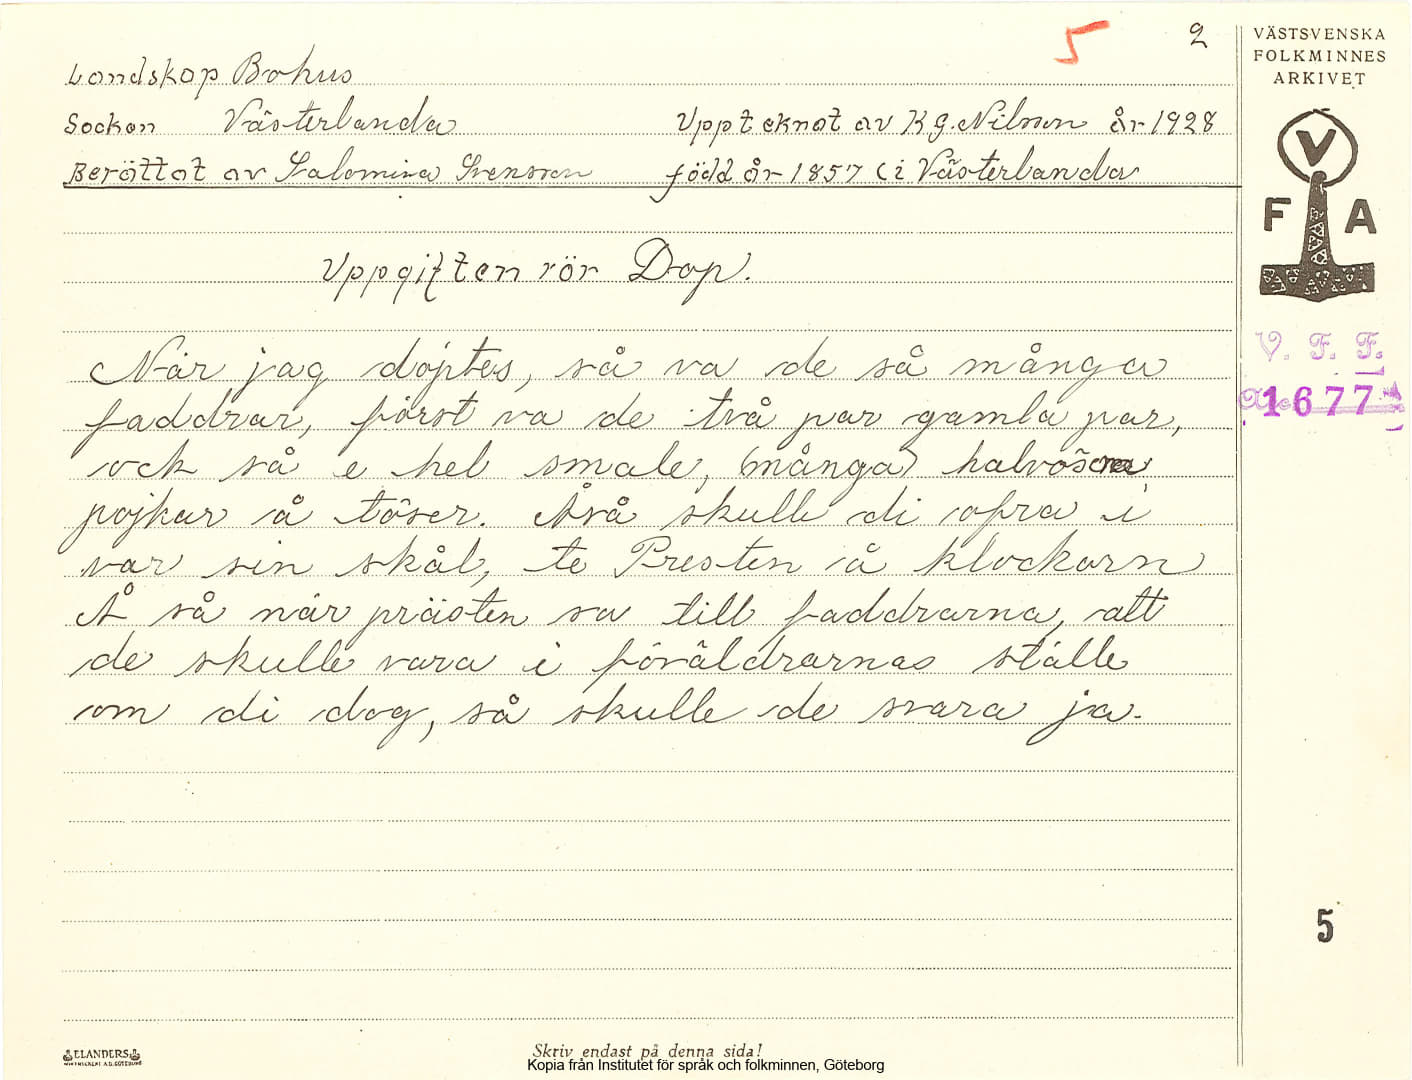 5
2
VÄSTSVENSKA
FOLKMINNES
ARKIVET
Landskap Bohus
Socken Västerlanda Upptecknat av K G. Nilsson år 1928
Berättat av Salomina Svensson född år 1857 i Västerlanda
V
F A
Uppgiften rör Dop.
V. F. F.
1677
När jag döptes, så va de så många
faddrar, först va de två par gamla par,
ock så e hel smale, (många) halvösna
pojkar å töser. Åså skulle di ofra i
var sin skål, te Presten å klockarn
Å så när prästen sa till faddrarna, att
de skulle vara i föräldrarnas ställe
om di dog, så skulle de svara ja.
5
ELANDERS
Skriv endast på denna sida!
Kopia från Institutet för språk och folkminnen, Göteborg